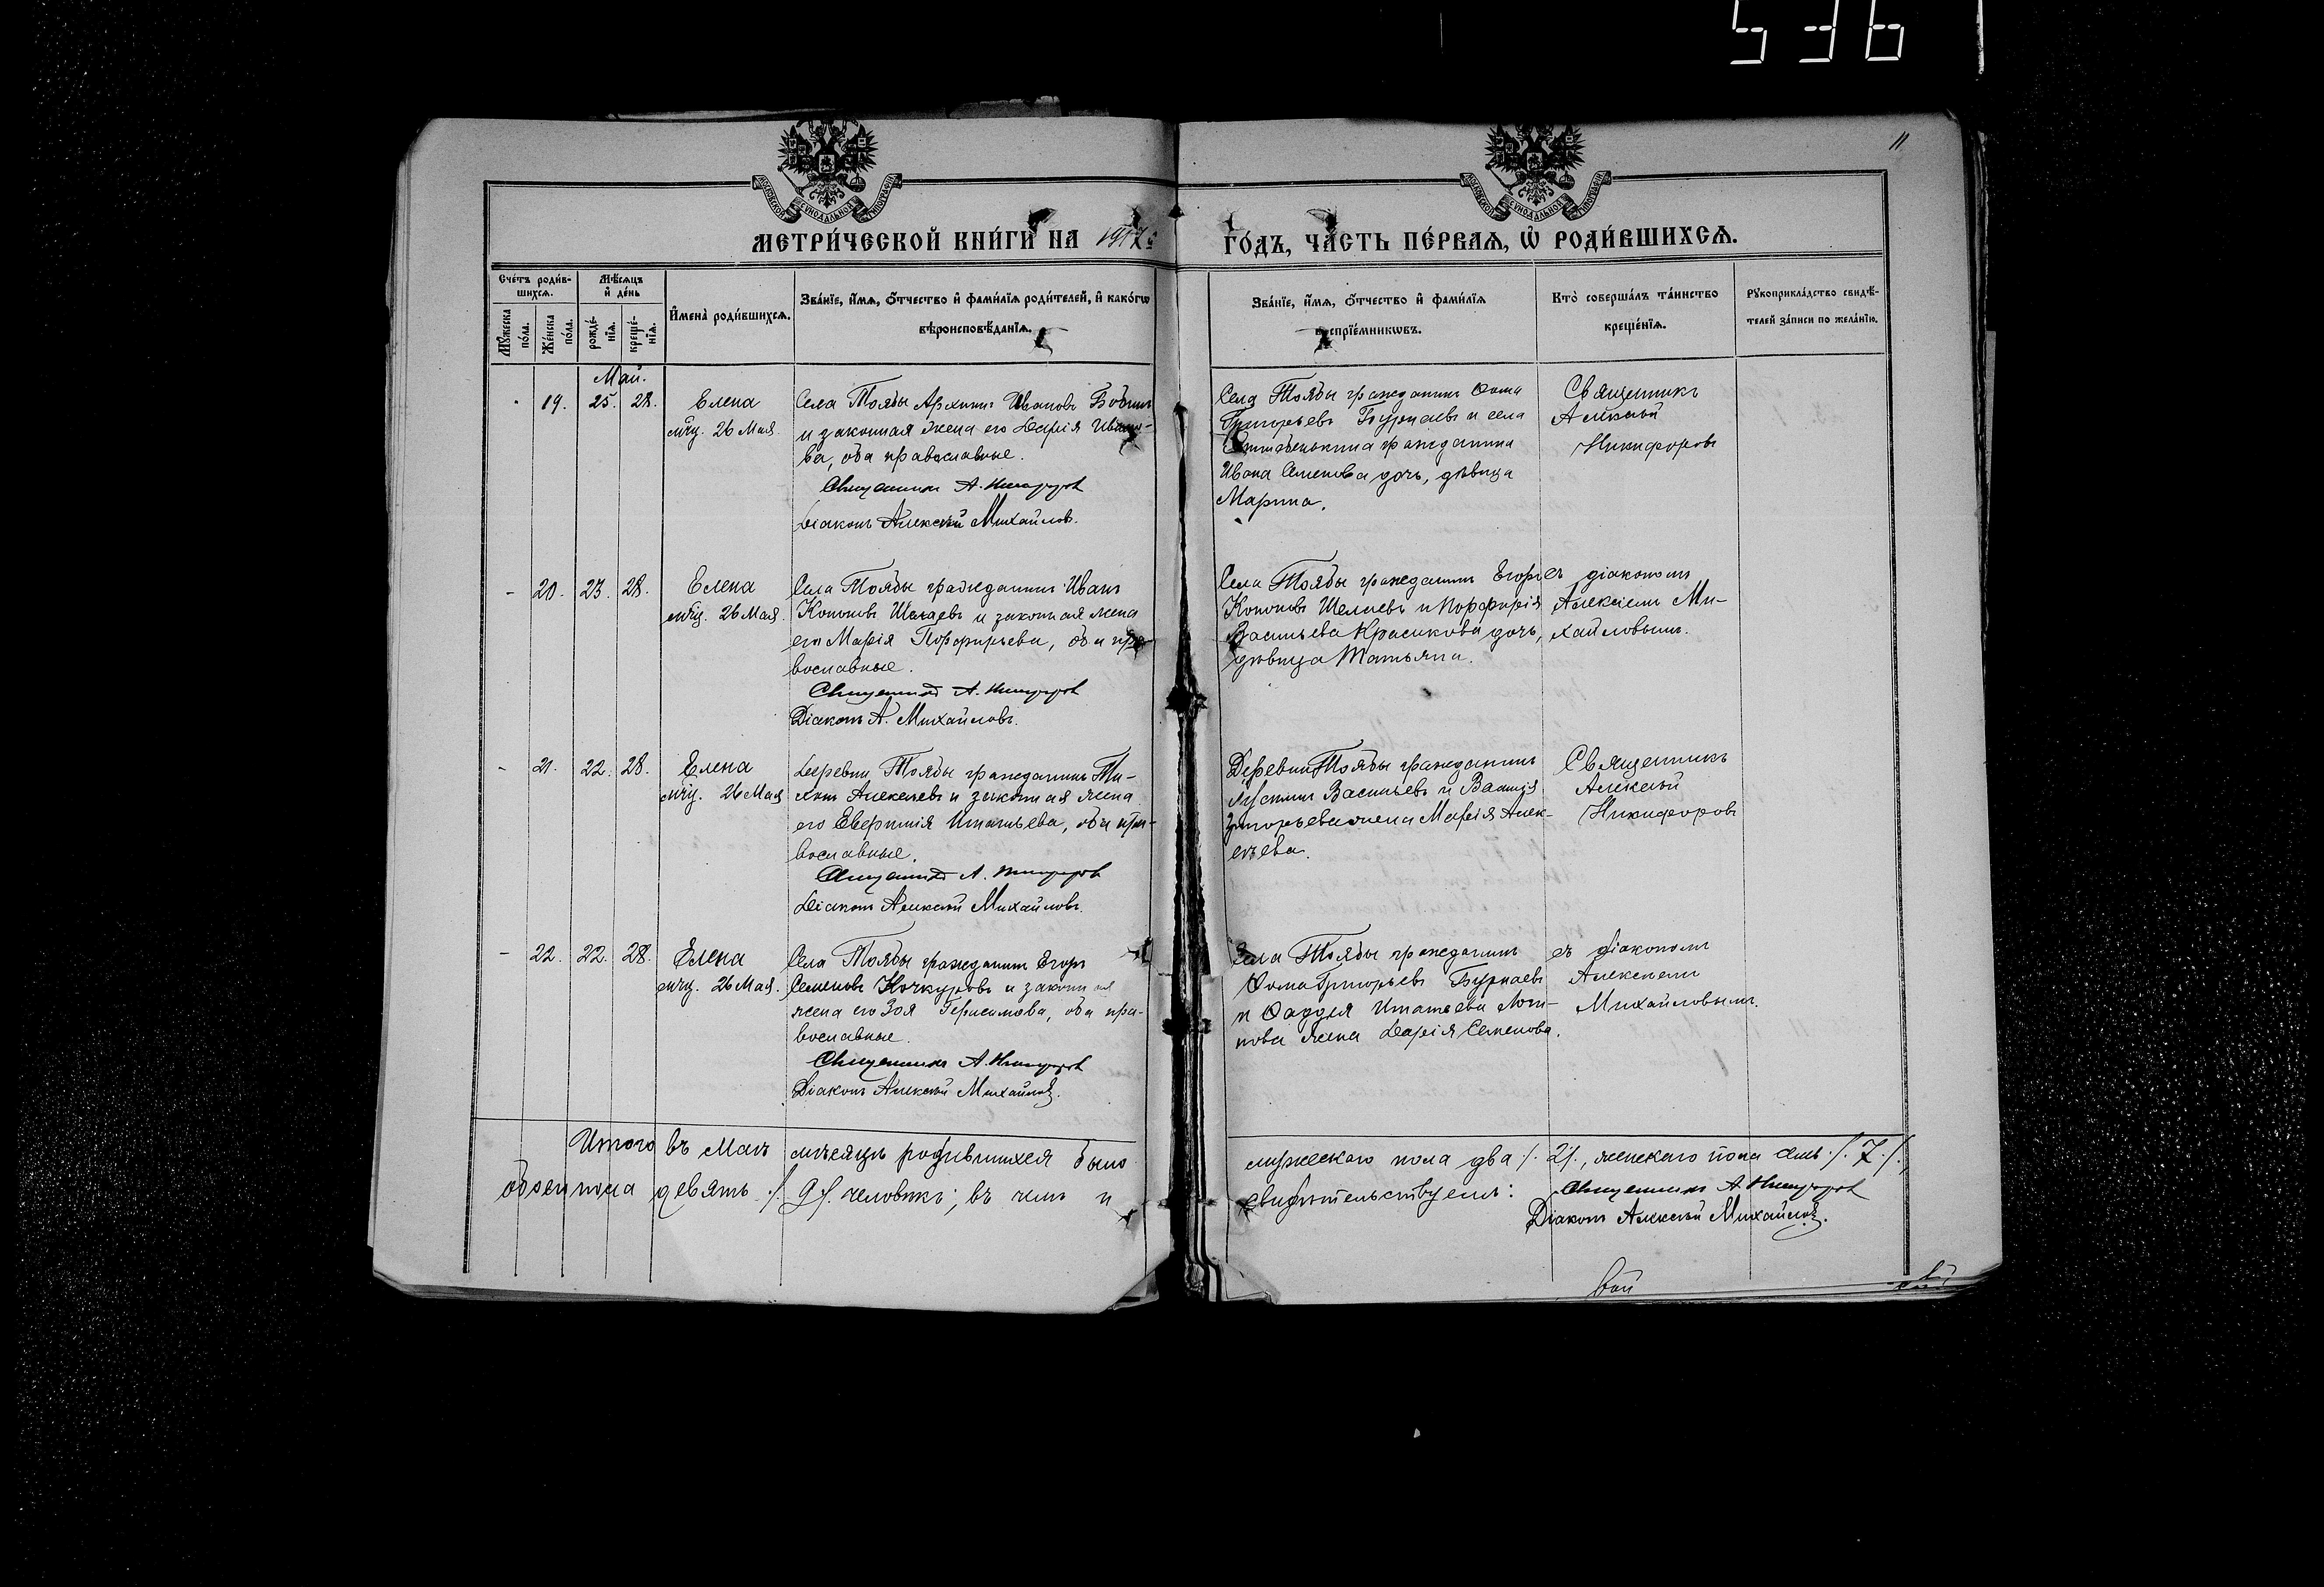 536
11
МОСКОВСКОЙ СѴНОДАЛЬНОЙ ТИПОГРАФІИ
МОСКОВСКОЙ СѴНОДАЛЬНОЙ ТИПОГРАФІИ
МЕТРИ́ЧЕСКОЙ КНИ́ГИ НА 1917 ГО́ДЪ, ЧА́СТЬ ПЕ́РВАѦ, Ѡ҆ РОДИ́ВШИХСѦ.
Сче́тъ роди́в-
шихсѧ.
Мѣ́сѧцъ
и҆ де́нь
Мꙋ́жеска
по́ла.
Же́нска
по́ла.
рожде́-
нїѧ.
креще́-
нїѧ.
И҆мена̀ роди́вшихсѧ.
Зва́нїе, и҆́мѧ, ѻ҆́тчество и҆ фами́лїѧ роди́телей, и҆ како́гѡ
вѣроисповѣ́данїѧ.
Зва́нїе, и҆́мѧ, ѻ҆́тчество и҆ фами́лїѧ
воспрїе́мникѡвъ.
Кто̀ соверша́лъ та́инство
креще́нїѧ.
Рꙋкоприкла́дство свидѣ́-
телей за́писи по жела́нїю.
Май.
19. 25. 28.
Елена
мчц. 26 Мая.
Села Тоябы Архипъ Ивановъ
и законная жена его Дарія Ивано-
ва, оба православные.
Священникъ А. Никифоровъ
Діаконъ Алексѣй Михайловъ.
Села Тоябы гражданинъ Ѳома
Григорьевъ Бурнаевъ и села
гражданина
Ивана Семенова дочь, дѣвица
Марина.
Священникъ
Алексѣй
Никифоровъ
- 20. 23. 28.
Елена
мчц. 26 Мая.
Села Тоябы гражданинъ Иванъ
Кононовъ и законная жена
его Марія Порфирьева, оба пра-
вославные.
Священникъ А. Никифоровъ
Діаконъ А. Михайловъ.
Села Тоябы гражданинъ Егоръ
Кононовъ и Порфирія
Васильева Красикова дочь,
дѣвица Татьяна.
съ діакономъ
Алексѣемъ Ми-
хайловымъ.
- 21. 22. 28.
Елена
мчц. 26 Мая
Деревни Тоябы гражданинъ Ти-
Алексѣевъ и законная жена
его Евфимія Игнатьева, оба пра-
вославные.
Священникъ А. Никифоровъ
Діаконъ Алексѣй Михайловъ.
Деревни Тоябы гражданинъ
Васильевъ и Василія
Григорьева жена Марія Алек-
сѣева.
Священникъ
Алексѣй
Никифоровъ
- 22. 22. 28.
Елена
мчц. 26 Мая.
Села Тоябы гражданинъ Егоръ
Семеновъ Кочкуровъ и законная
жена его Зоя Герасимова, оба пра-
вославные.
Священникъ А. Никифоровъ
Діаконъ Алексѣй Михайловъ.
Села Тоябы гражданинъ
Ѳома Григорьевъ Бурнаевъ
и Ѳаддея Игнатьева Логи-
нова жена Дарія Семенова.
съ діакономъ
Алексѣемъ
Михайловымъ.
Итого въ Маѣ мѣсяцѣ родившихся было мужескаго пола два /. 2 /., женскаго пола семь /. 7 /.,
обоего пола девять /. 9 /. человѣкъ; въ чемъ и свидѣтельствуемъ: Священникъ А. Никифоровъ
Діаконъ Алексѣй Михайловъ.